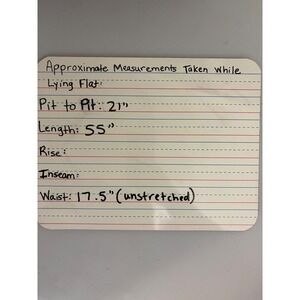 Approximate Measurements Taken While
Lying Flat:
Pit to Pit: 21"
Length: 55"
Rise:
Inseam:
Waist: 17.5" (unstretched)